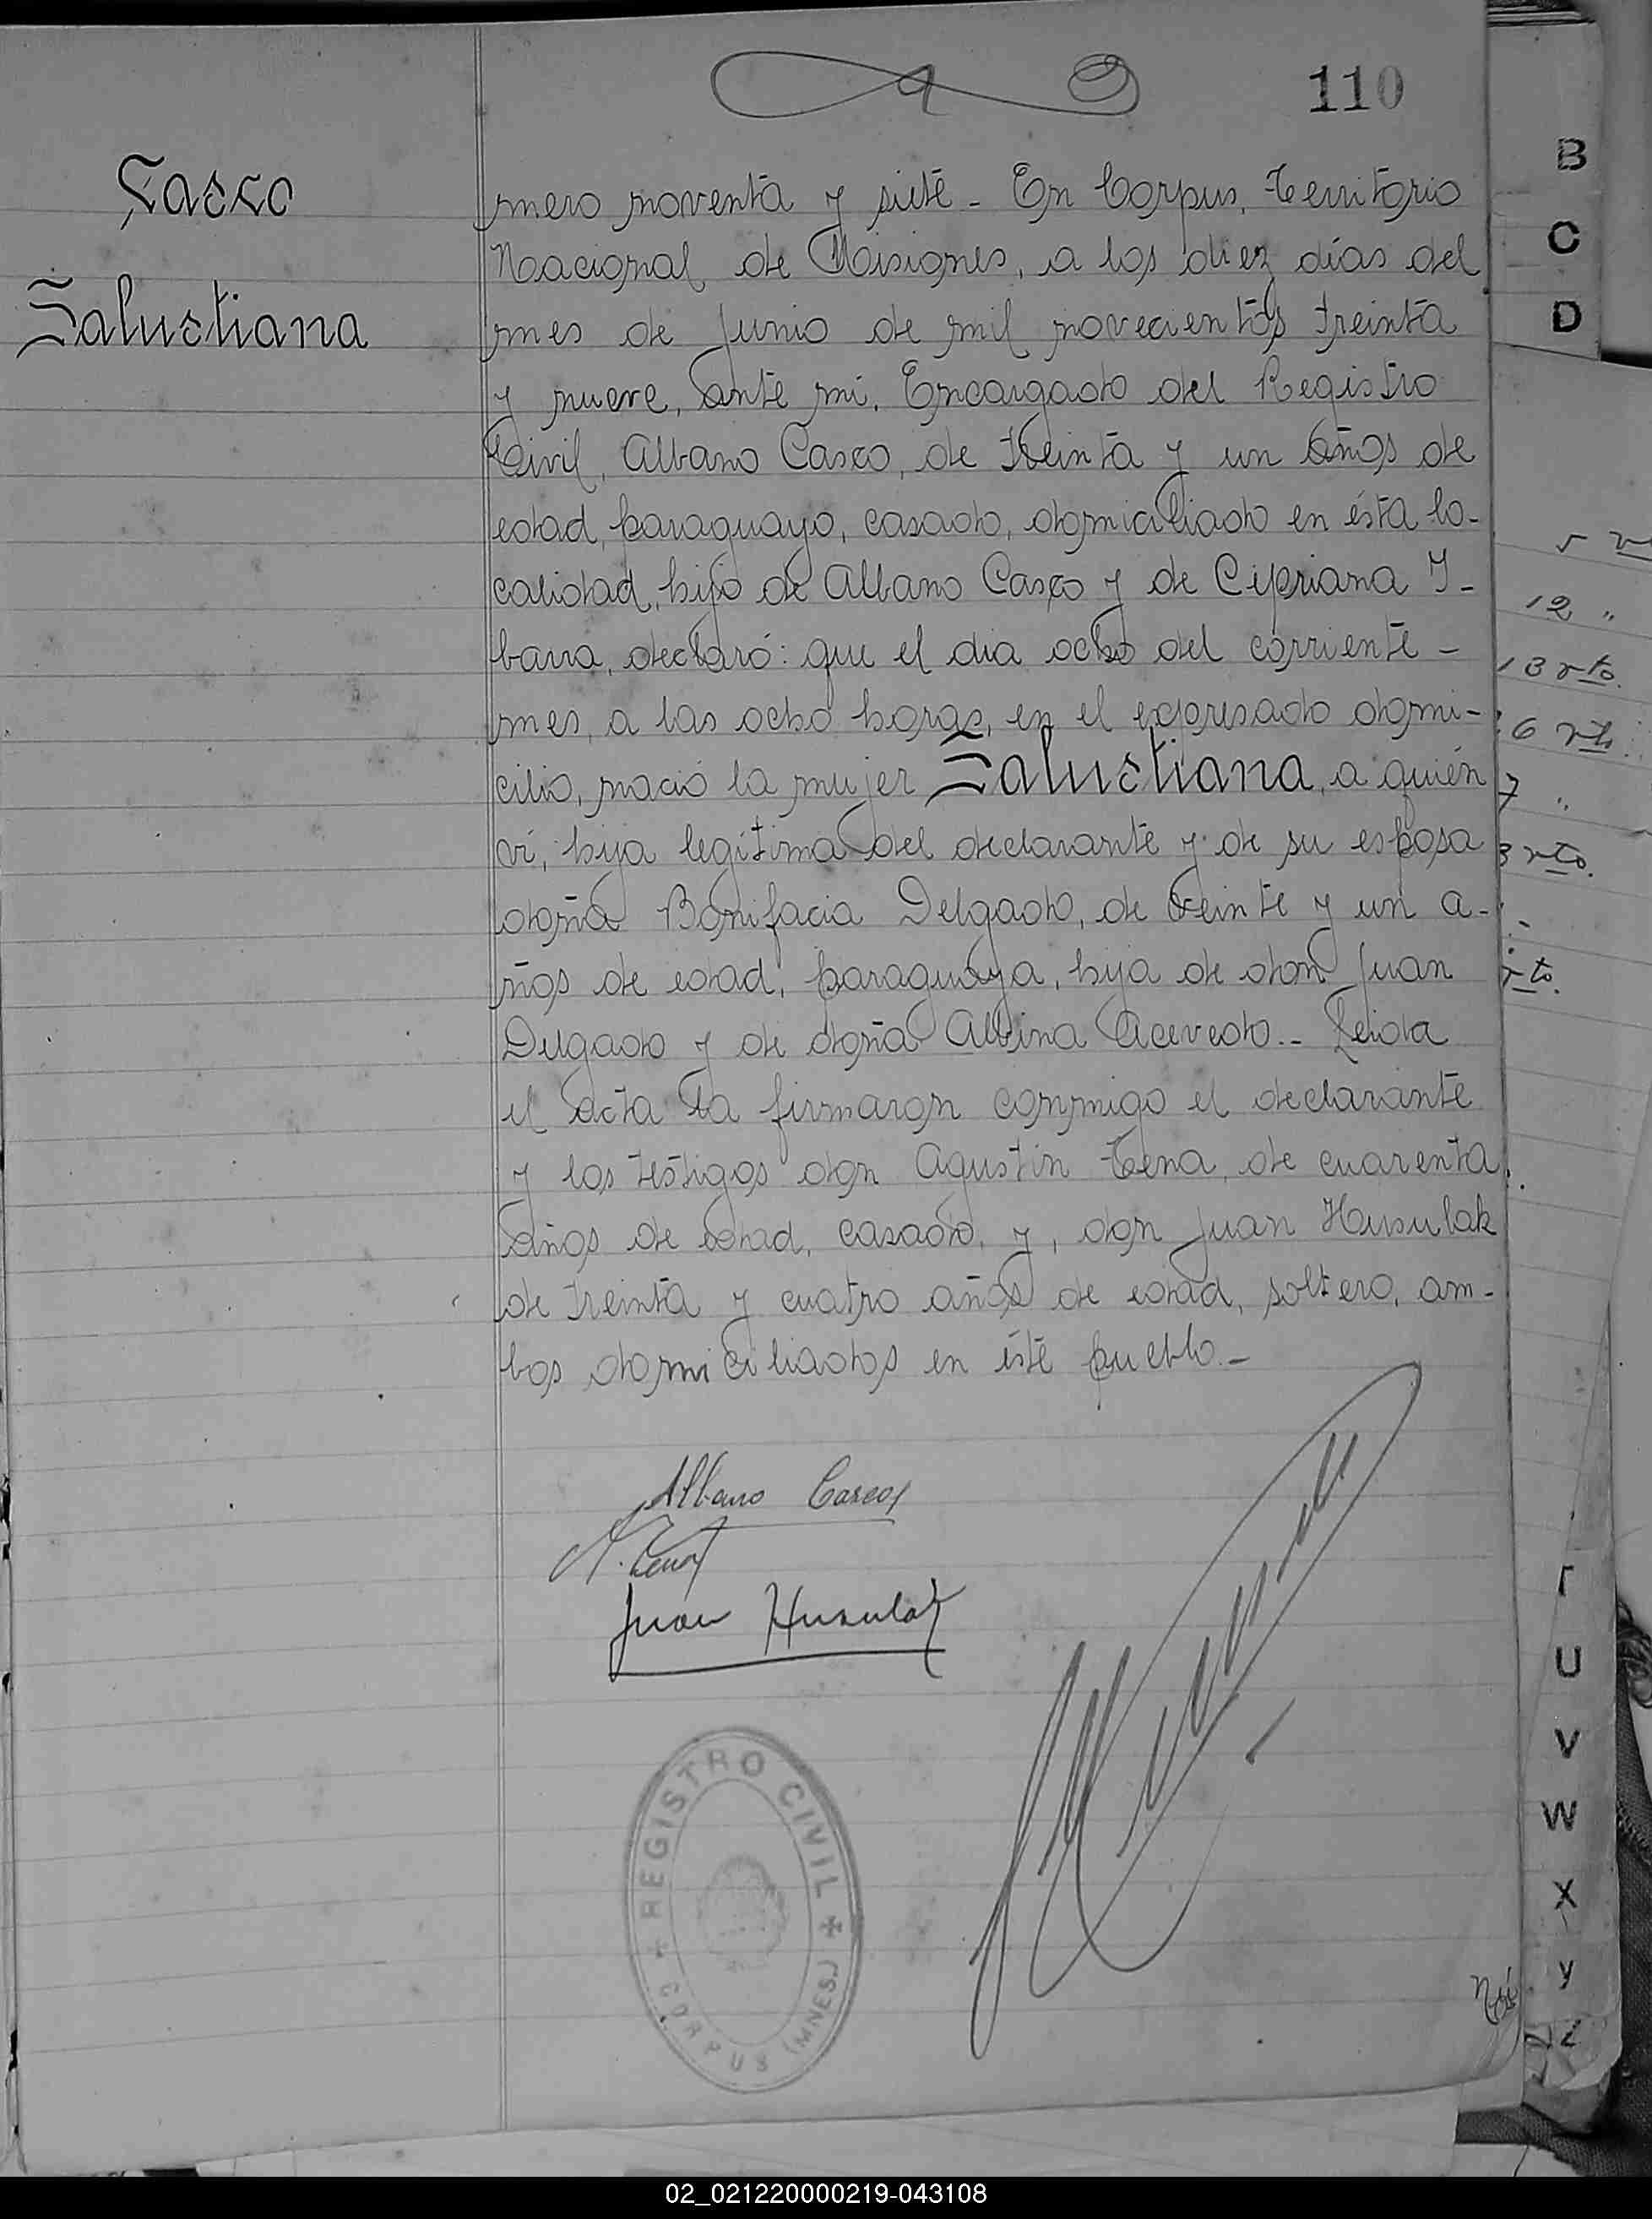 110
Casco
Salustiana
mero noventa y siete - En Corpus, Territorio
Nacional de Misiones, a los diez días del
mes de Junio de mil novecientos treinta
y nueve, ante mi, Encargado del Registro
Civil, Albano Casco, de treinta y un años de
edad, paraguayo, casado, domiciliado en ésta lo-
calidad, hijo de Albano Casco y de Cipriana I-
barra, declaró: que el dia ocho del corriente -
mes, a las ocho horas, en el expresado domi-
cilio, nació la mujer Salustiana, a quién
vi, hija legítima del declarante y de su esposa
doña Bonifacia Delgado, de veinte y un a-
ños de edad, paraguaya, hija de don Juan
Delgado y de doña Albina Acevedo.- Leida
el acta la firmaron conmigo el declarante
y los testigos don Agustin Tena, de cuarenta
años de edad, casado, y, don Juan Husulak
de treinta y cuatro años de edad, soltero, am-
bos domiciliados en éste pueblo.-
Albano Casco
A. Tena
Juan Husulak
REGISTRO CIVIL
CORPUS (MNES.)
B
C
D
12 "
13 vto.
6 vto.
7 "
3 vto.
vto.
T
U
V
W
X
Y
Z
02_021220000219-043108